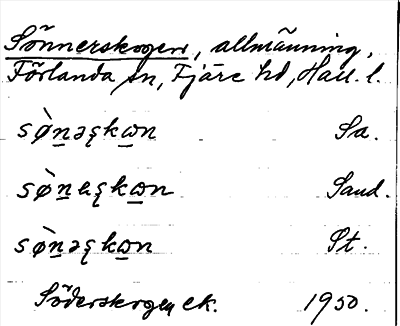 Sönnerskogen, allmänning,
Förlanda sn, Fjäre hd, Hall. l.
sø̀n̲əʂkω̲n Sa.
sø̀n̲ɐʂkω̲n Sand.
sø̀n̲əʂkω̲n St.
Söderskogen ek. 1950.